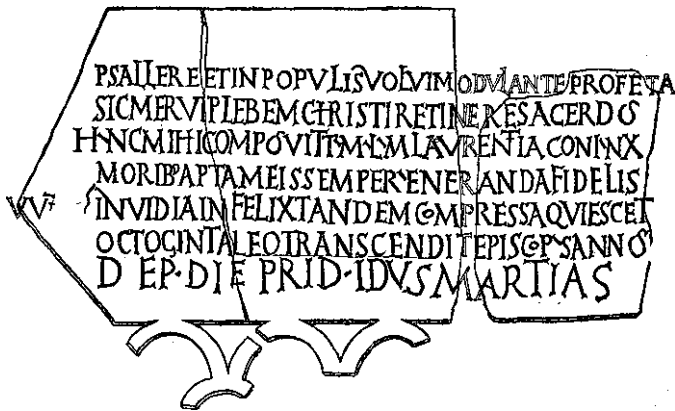 PSALLEREETINPOPVLISVOLVIMODVLANTEPROFETA
SICMERVIPLEBEMCHRISTIRETINERESACERDOS
HVNCMIHICOMPOSVITTVMVLVMLAVRENTIACONIVNX
MORIBVSAPTAMEISSEMPERVENERANDAFIDELIS
INVIDIAINFELIXTANDEMCOMPRESSAQVIESCET
OCTOGINTALEOTRANSCENDITEPISCOPVSANNOS
DEP·DIE PRID·IDVS MARTIAS